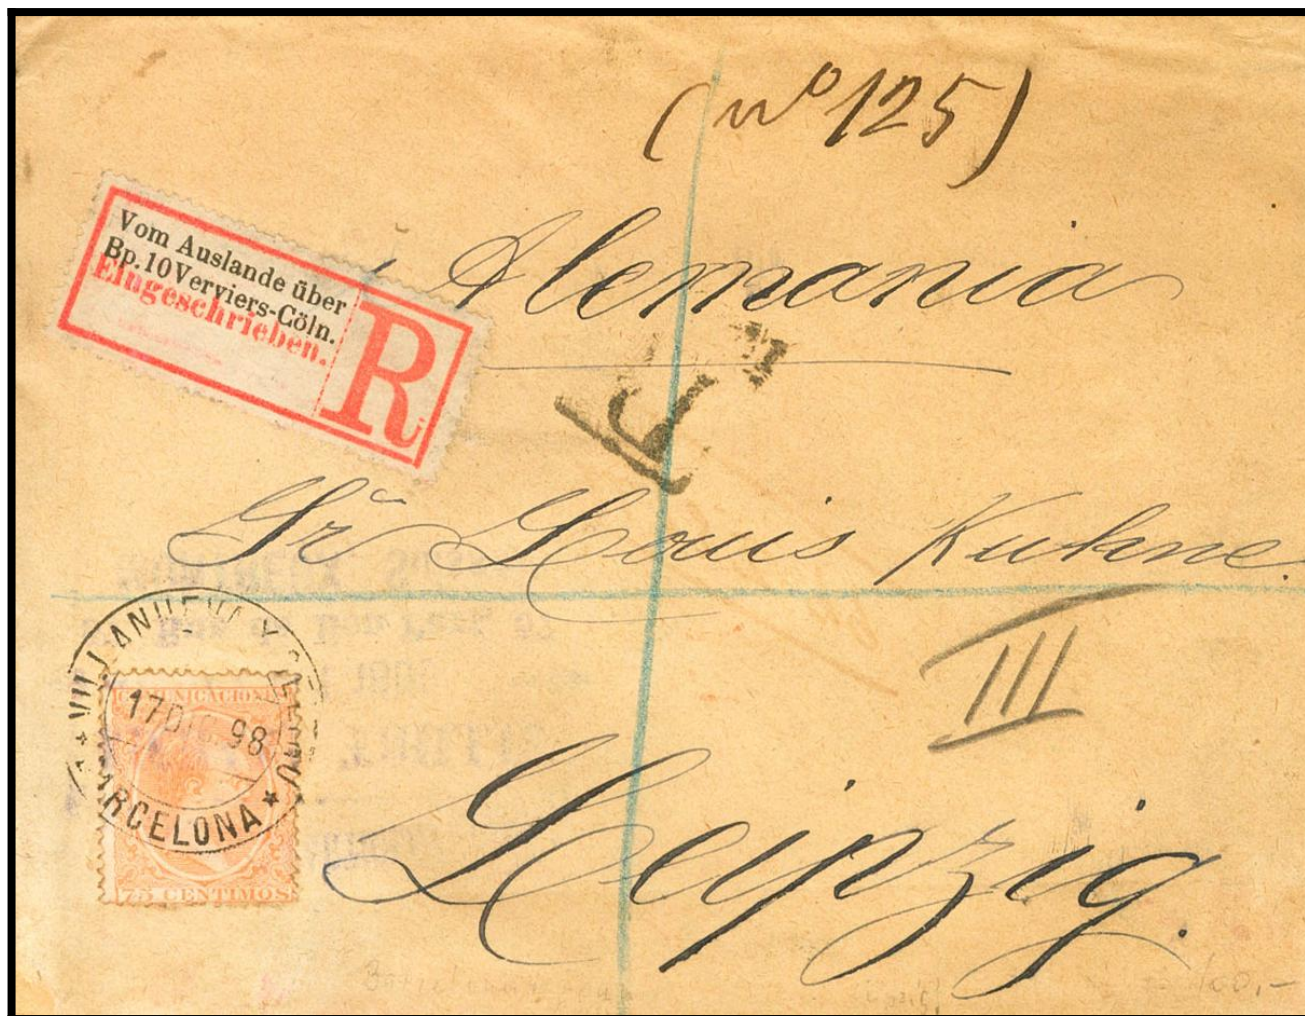 (nº 125)
Alemania
Vom Auslande über
Bp. 10 Verviers-Cöln.
Eingeschrieben.
R
R
Sr Louis Kuhne
III
Leipzig.
VILLANUEVA Y GELTRU
17 DIC. 98
BARCELONA
COMUNICACIONES
75 CENTIMOS
100,-